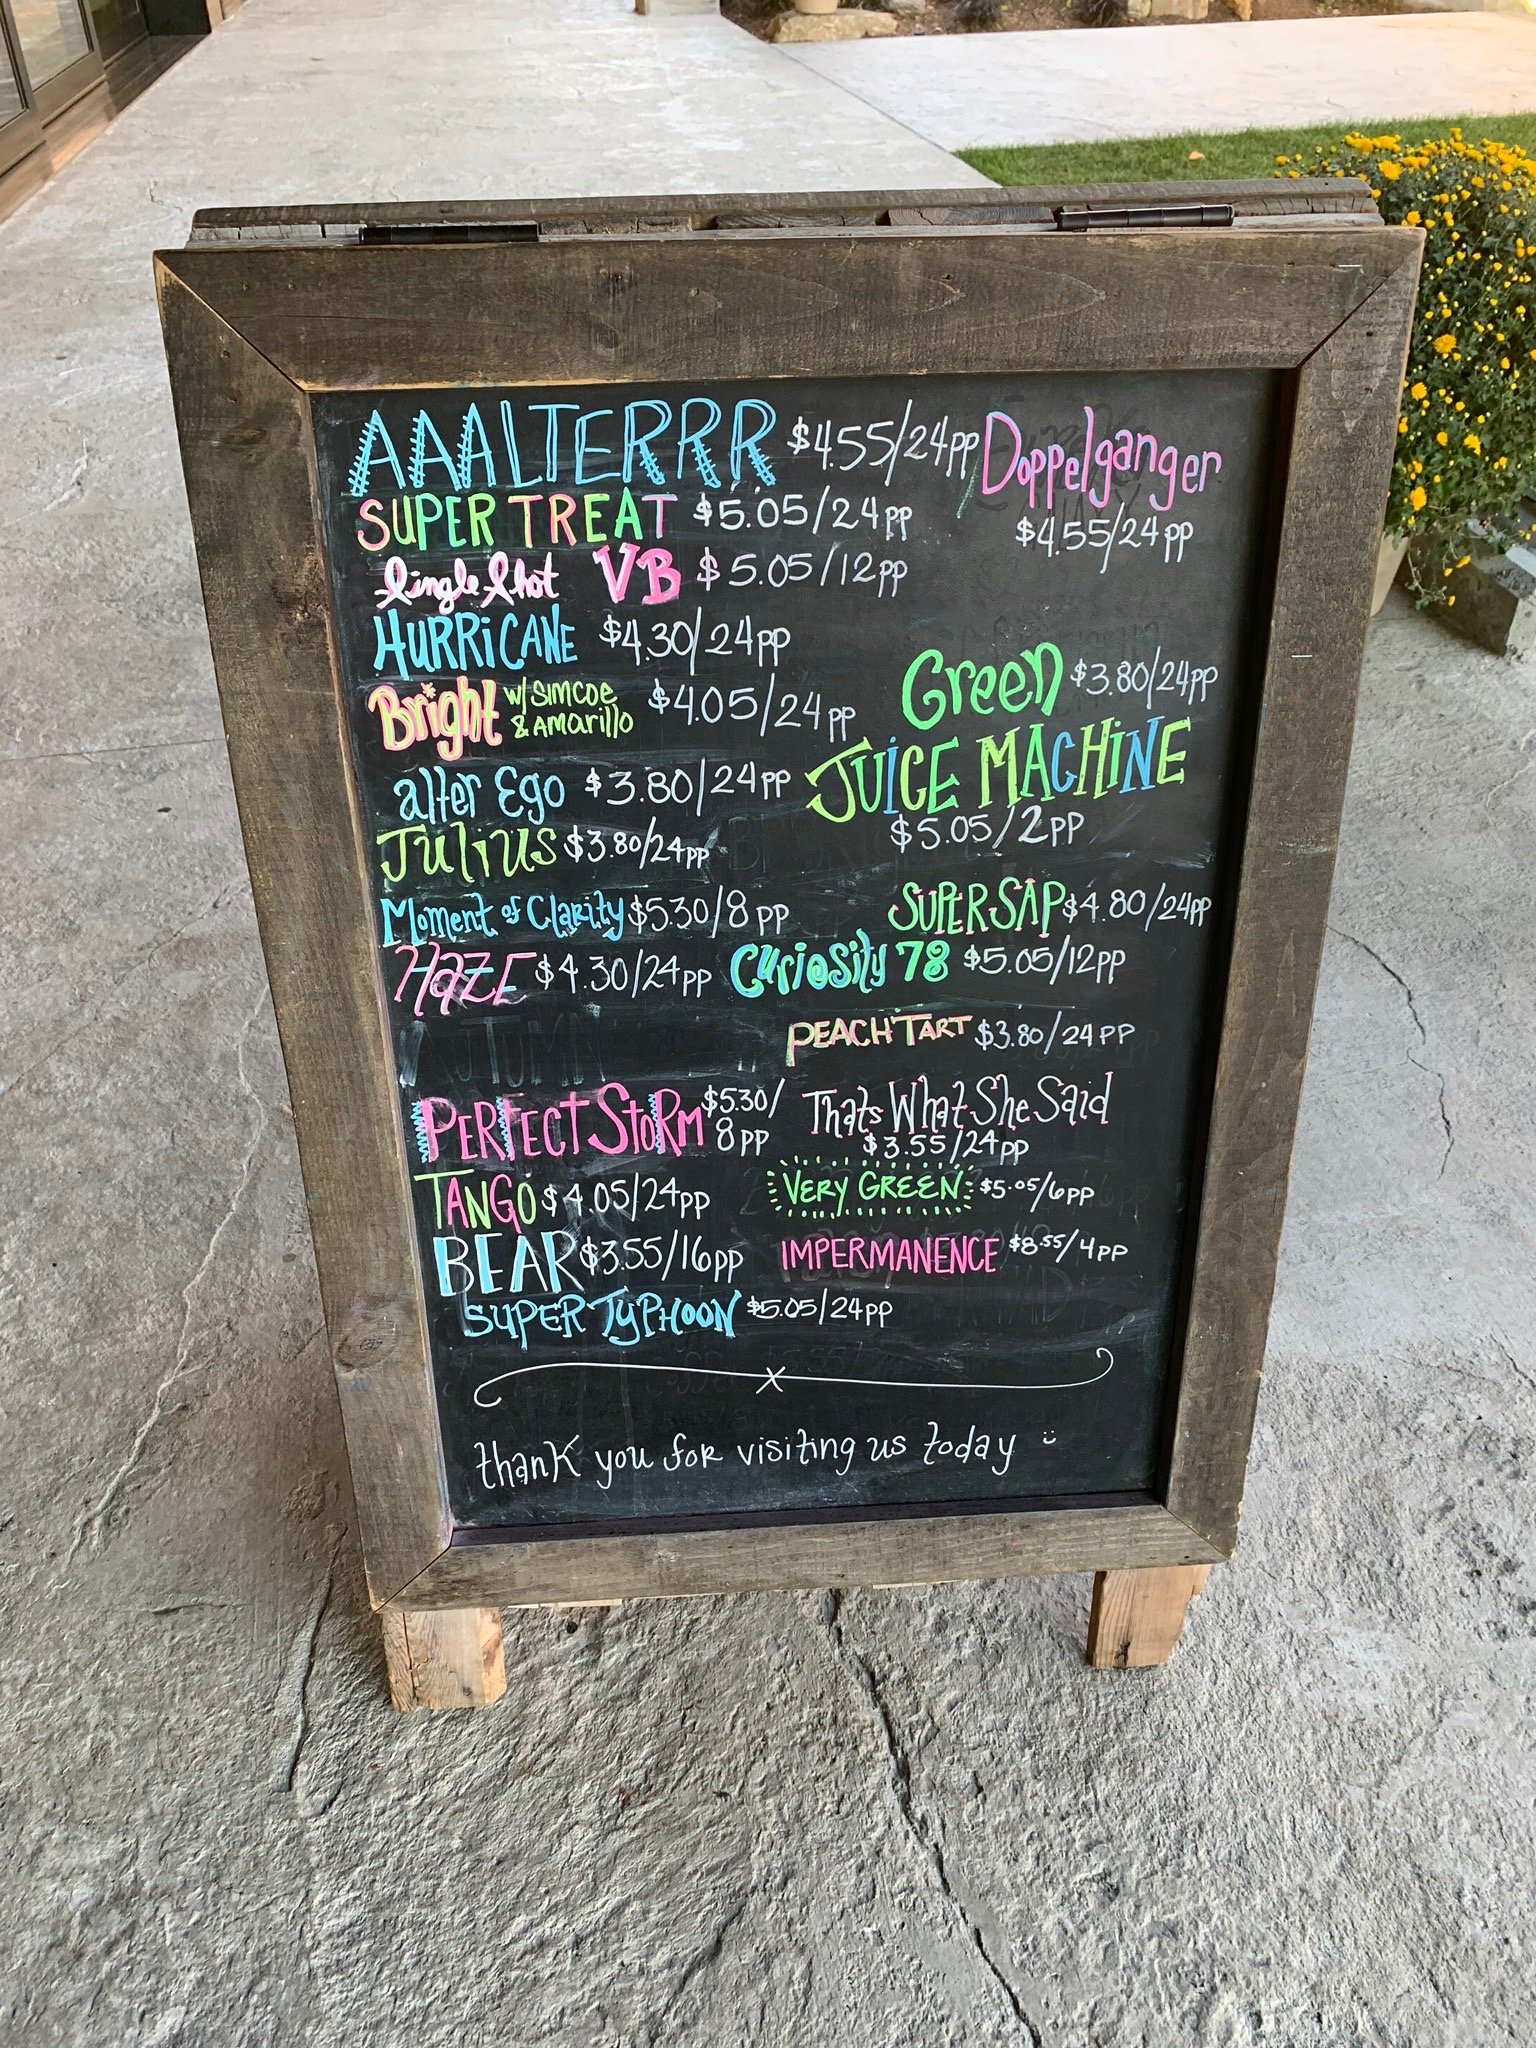 AAALTERRR $4.55/24pp
SUPER TREAT $5.05/24pp
Single Shot VB $5.05/12pp
HURRiCANE $4.30/24pp
Bright w/ SIMCOE & AMArillo $4.05/24pp
alter Ego $3.80/24pp
Julius $3.80/24pp
Moment of Clarity $5.30/8pp
HAZE $4.30/24pp
AUTUMN
PERFECT STORM $5.30/8pp
TANGO $4.05/24pp
BEAR $3.55/16pp
SUPER TYPHOON $5.05/24pp
Doppelganger
$4.55/24pp
Green $3.80/24pp
JUiCE MACHiNE
$5.05/2pp
SUPER SAP $4.80/24pp
Curiosity 78 $5.05/12pp
PEACH TART $3.80/24pp
Thats What She Said
$3.55/24pp
VERY GREEN $5.05/6pp
IMPERMANENCE $8.55/4pp
thank you for visiting us today